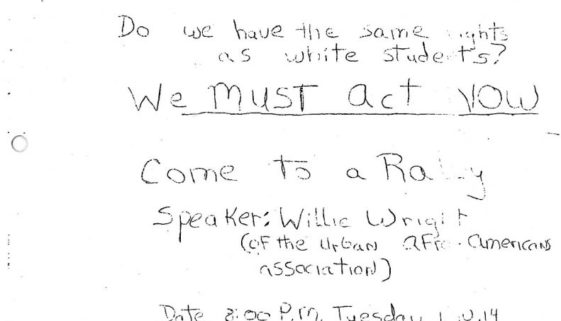 Do we have the same rights
as white students?
We MUST act NOW
Come to a Rally
Speaker: Willie Wright
(of the Urban Afro-Americans
Association)
Date 8:00 P.M. Tuesday